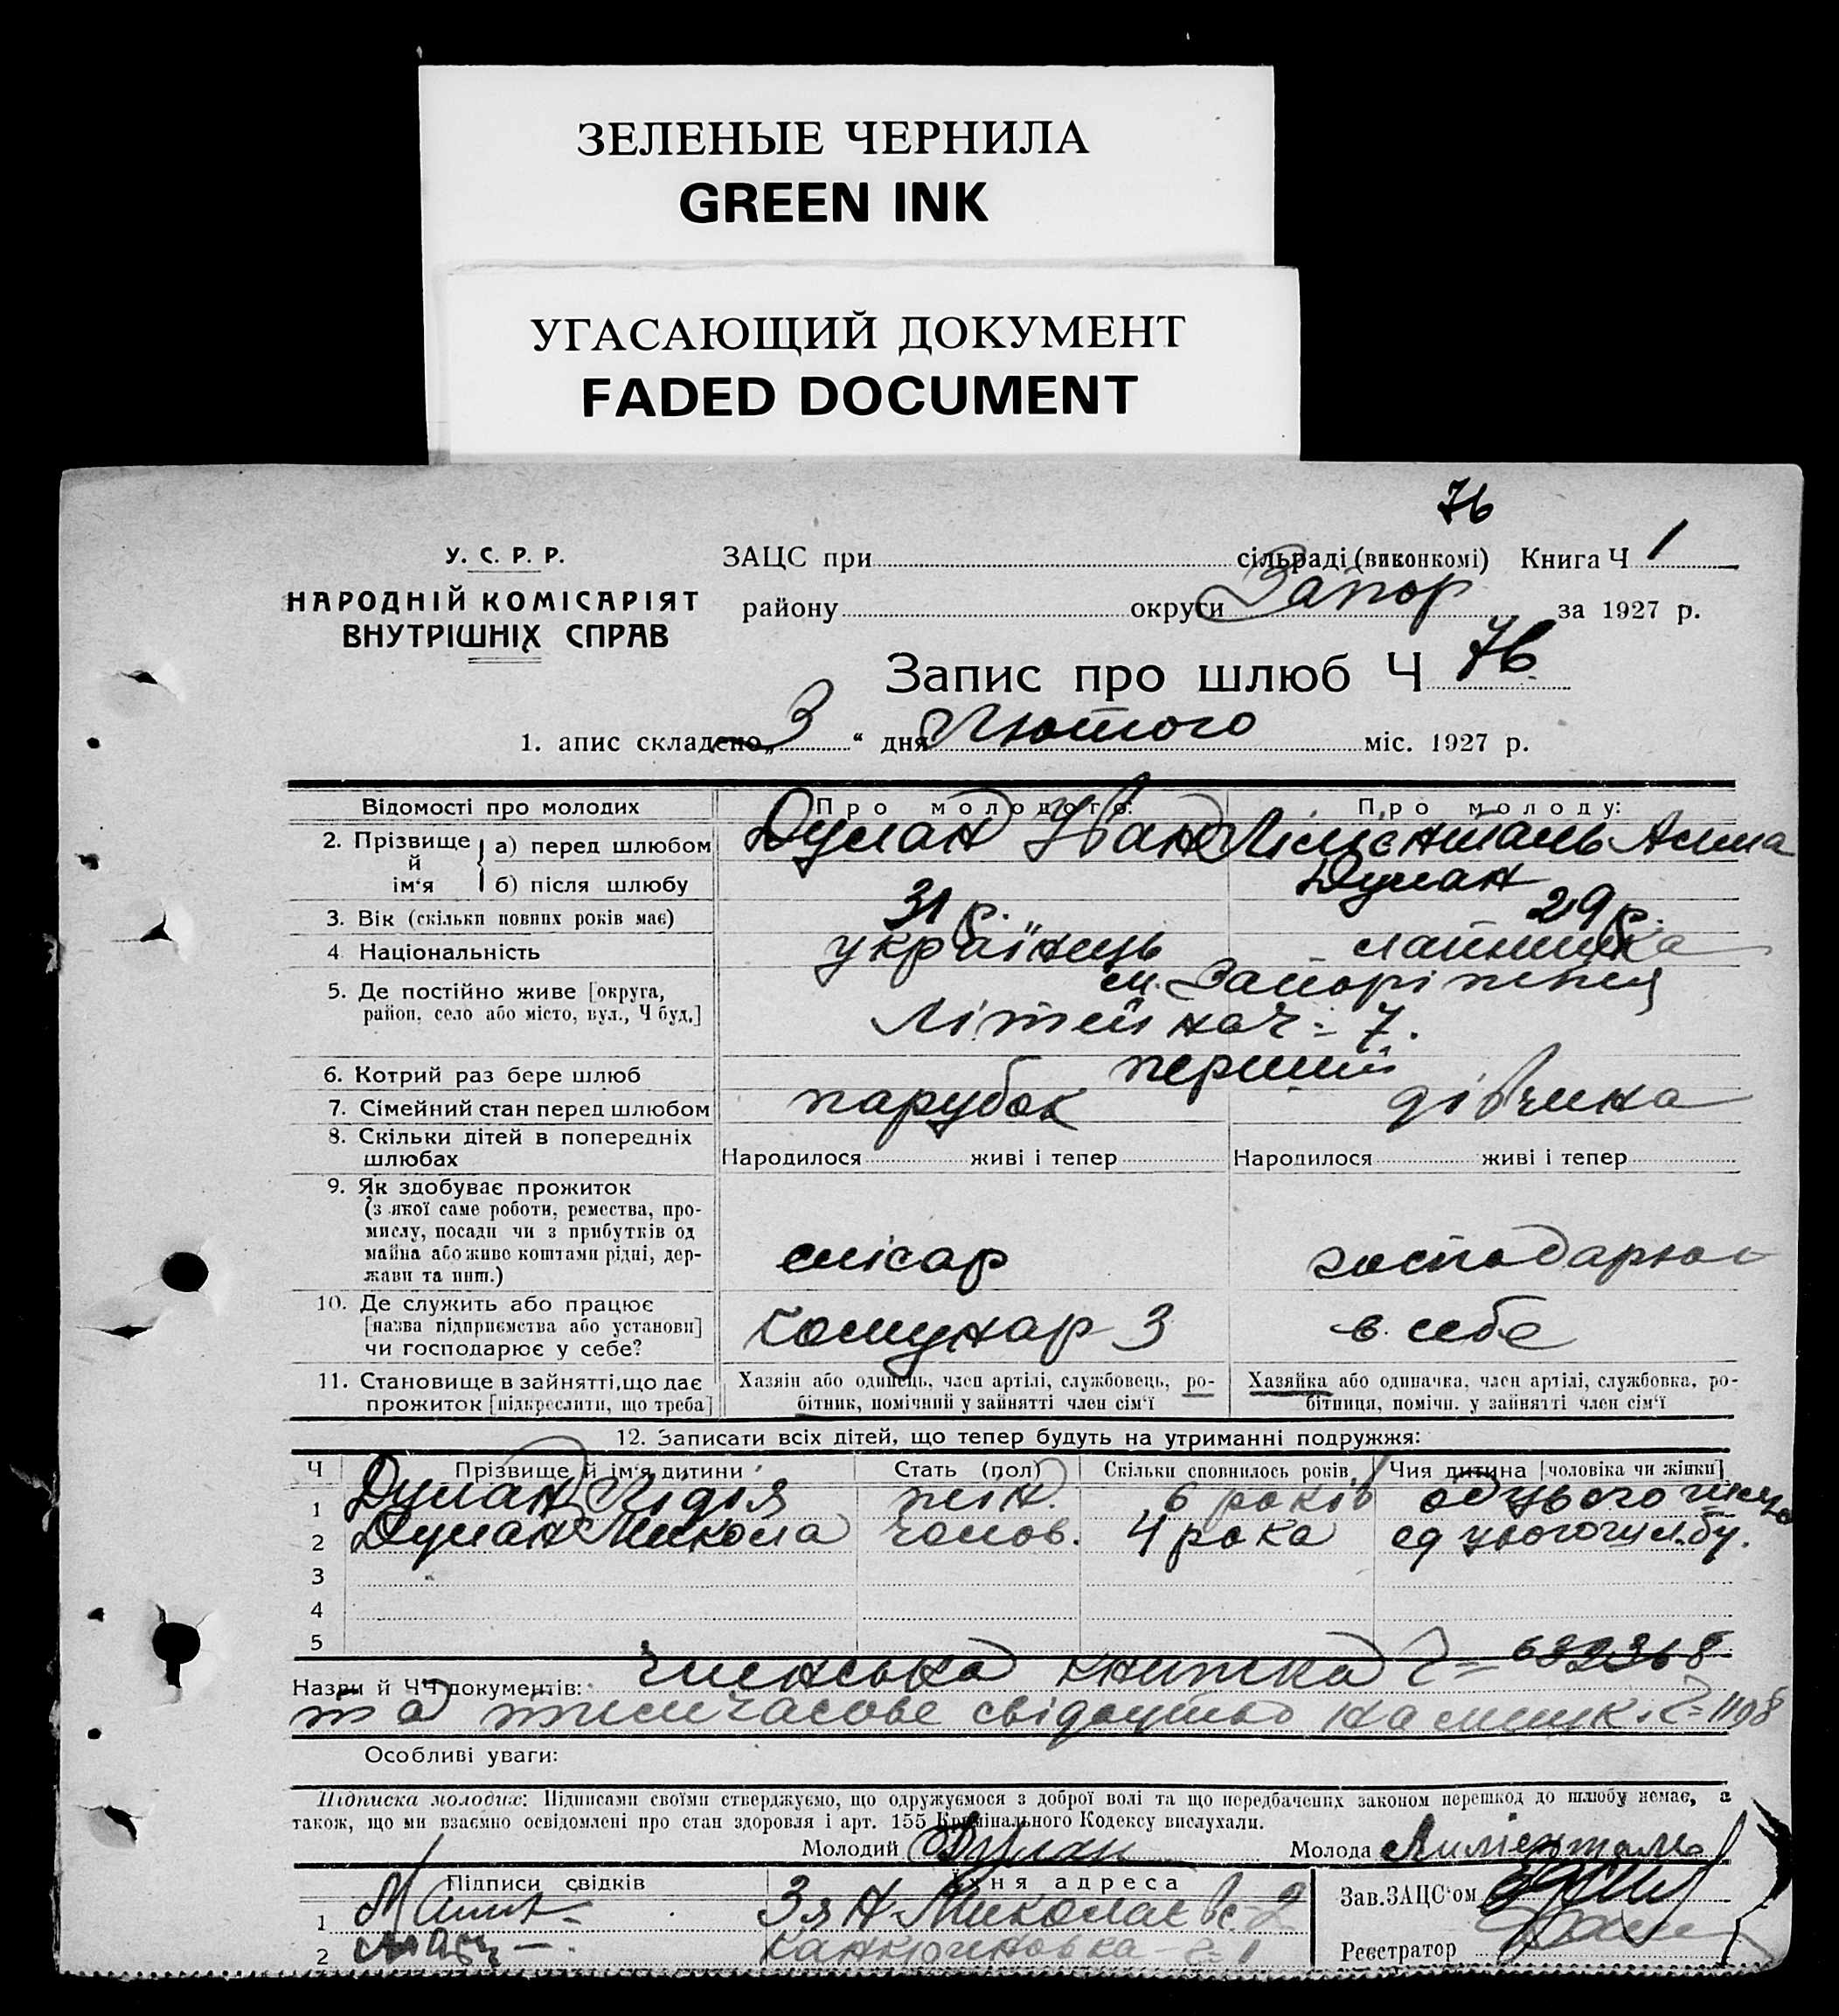 ЗЕЛЕНЫЕ ЧЕРНИЛА
GREEN INK
УГАСАЮЩИЙ ДОКУМЕНТ
FADED DOCUMENT
76
У. С. Р. Р.
НАРОДНІЙ КОМІСАРІЯТ
ВНУТРІШНІХ СПРАВ
ЗАЦС при сільраді (виконкомі) Книга Ч 1
району округи Запор за 1927 р.
Запис про шлюб Ч 76
1. апис складено „3“ дня Лютого міс. 1927 р.
Відомості про молодих Про молодого: Про молоду:
2. Прізвище й ім'я а) перед шлюбом Думан Іван Лілієнталь
б) після шлюбу Думан
3. Вік (скільки повних років має) 31 р. 29 р.
4 Національність українець латишка
5. Де постійно живе [округа, район, село або місто, вул., Ч буд.] м. Запоріжжя
Літейна ч = 7.
6. Котрий раз бере шлюб перший
7. Сімейний стан перед шлюбом парубок дівчина
8. Скільки дітей в попередніх шлюбах Народилося живі і тепер Народилося живі і тепер
9. Як здобуває прожиток
(з якої саме роботи, ремества, про-
мислу, посади чи з прибутків од
майна або живе коштами рідні, дер-
жави та инш.) слісар господарює
10. Де служить або працює
[назва підприємства або установи]
чи господарює у себе? Комунар 3 в себе
11. Становище в зайнятті, що дає
прожиток [підкреслити, що треба]
Хазяїн або одинець, член артілі, службовець, ро-
бітник, помічний у зайнятті член сім'ї
Хазяйка або одиначка, член артілі, службовка, ро-
бітниця, помічн. у зайнятті член сім'ї
12. Записати всіх дітей, що тепер будуть на утриманні подружжя:
Ч Прізвище й ім'я дитини Стать (пол) Скільки сповнилось років Чия дитина [чоловіка чи жінки]
1 Думан Лідія жін. 6 років од цього
2 Думан Микола чолов. 4 рока од цього шлюбу.
3
4
5
Назви й ЧЧ документів: Членська книжка Ч = 632368
та тимчасове свідоцтво Ч = 1198
Особливі уваги:
Підписка молодих: Підписами своїми стверджуємо, що одружуємося з доброї волі та що передбачених законом перешкод до шлюбу немає, а
також, що ми взаємно освідомлені про стан здоровля і арт. 155 Крімінального Кодексу вислухали.
Молодий Думан Молода Лилиенталь
Підписи свідків Їхня адреса Зав. ЗАЦС'ом
1
2 Реєстратор